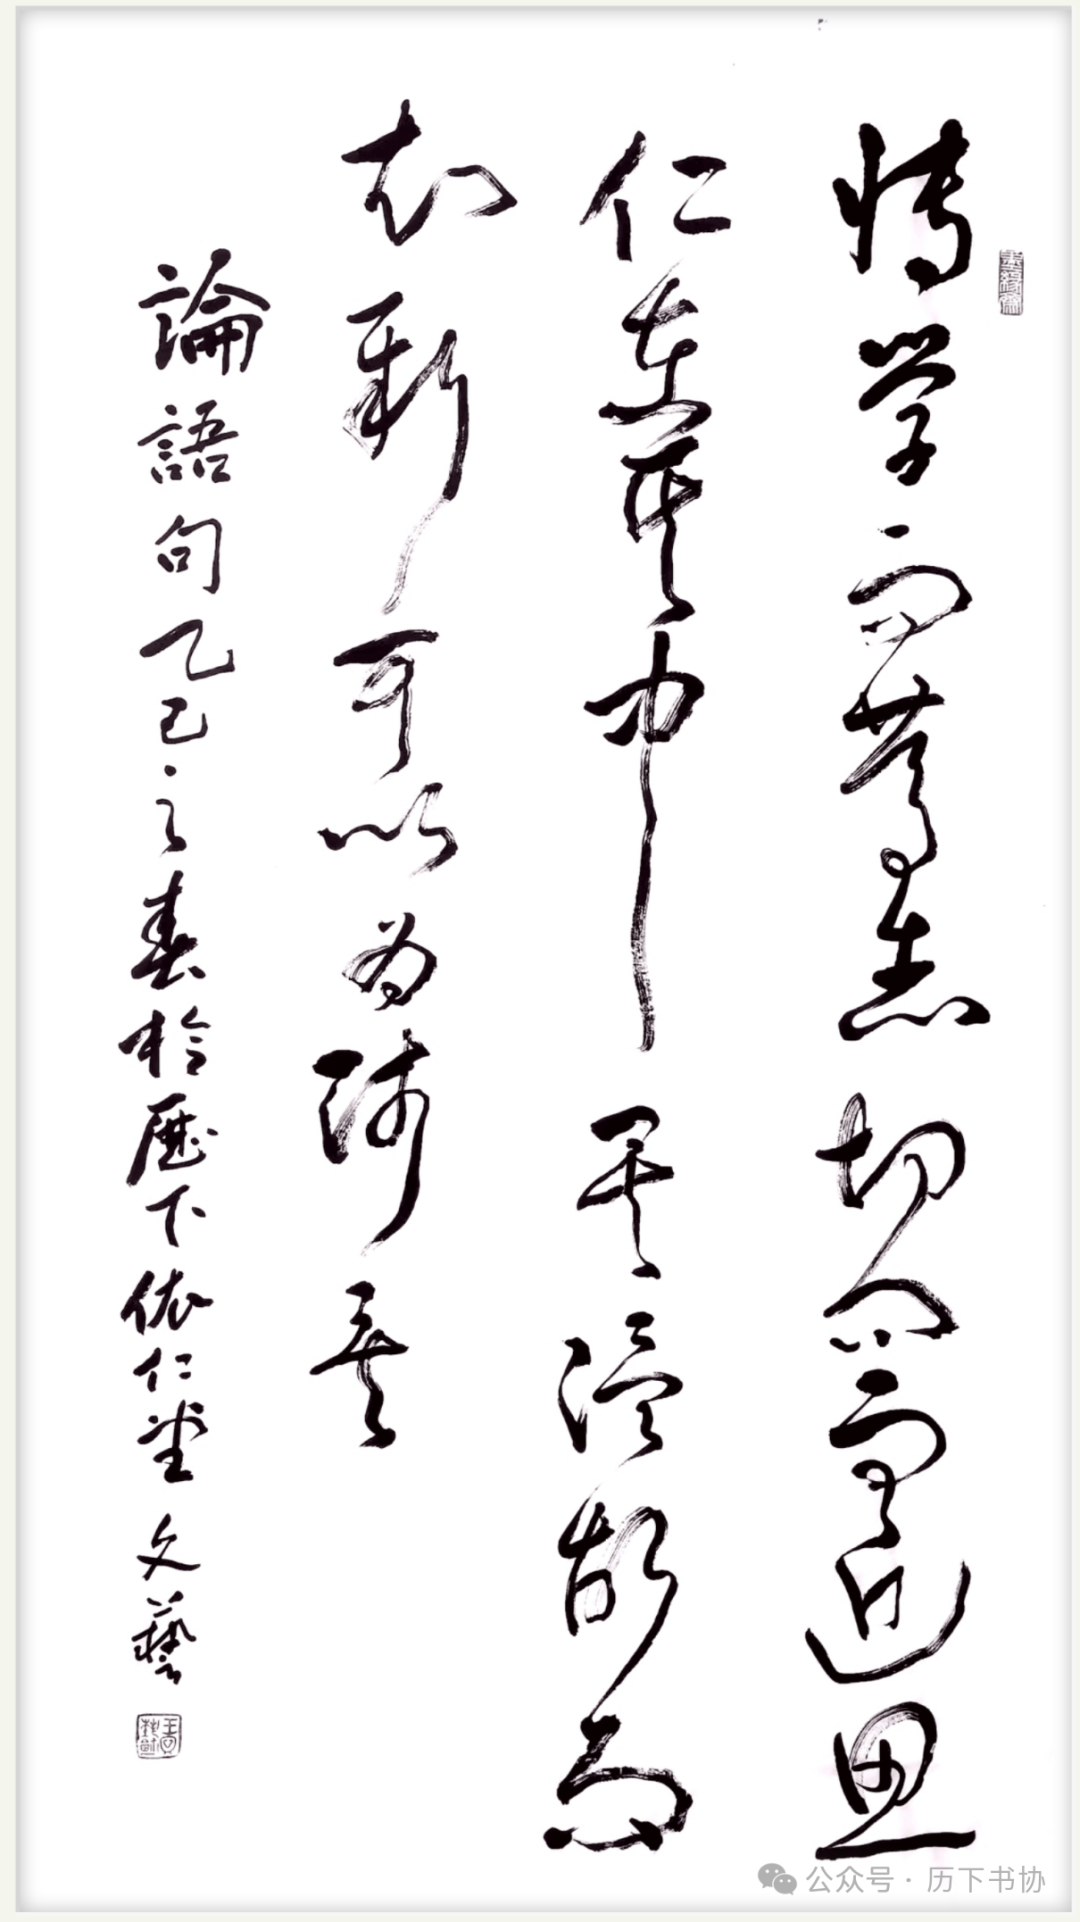 博学而篤志切問而近思
仁在其中矣温故而
知新可以為師矣
論語句乙巳之春於歷下依仁堂文藝
公众号·历下书协